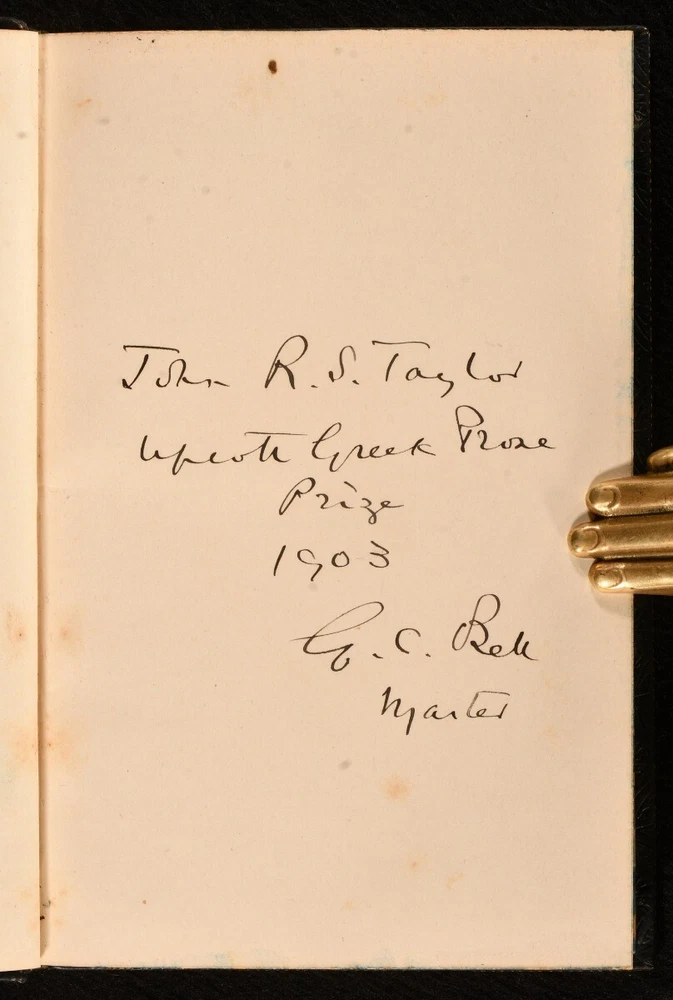 John R. S. Taylor
Upcott Greek Prose
Prize
1903
G. C. Bell
Master